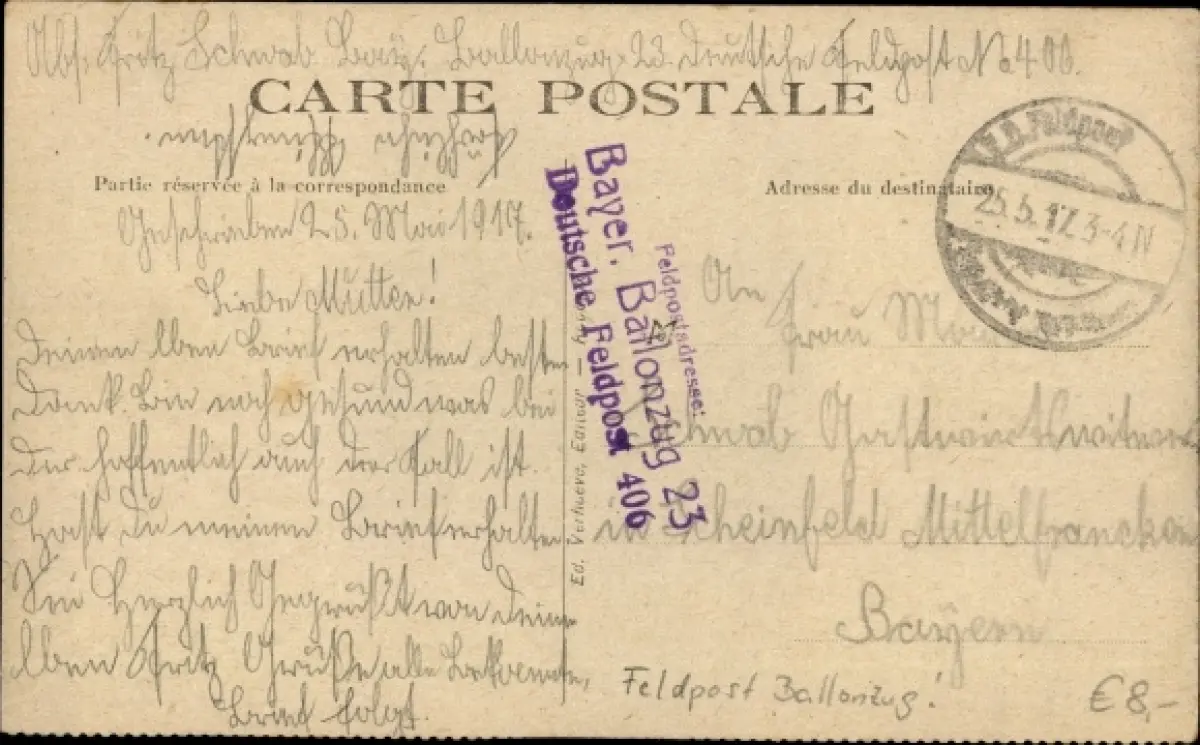 Abs. Fritz Schwab Bay. Ballonzug 23. Deutsche Feldpost No 406.
CARTE POSTALE
Partie réservée à la correspondance
Geschrieben 25. Mai 1917.
Liebe Mutter!
Deinen lben Brief erhalten besten
Dank. Bin noch gesund was bei
Dir hoffentlich auch der Fall ist.
Hast Du meinen Brief erhalten
Sei Herzlich Gegrüßt von Deinem
lben Fritz Grüße alle Bekannte,
Brief folgt.
Ed. Verhaeve, Editeur
Feldpostadresse:
Bayer. Ballonzug 23
Deutsche Feldpost 406
Adresse du destinataire
K.D. Feldpost
25.5.17. 3-4 N
An
Frau
Schwab Gastwirtswitwe
in Scheinfeld Mittelfrancken
Bayern
Feldpost Ballonzug!
€ 8,-